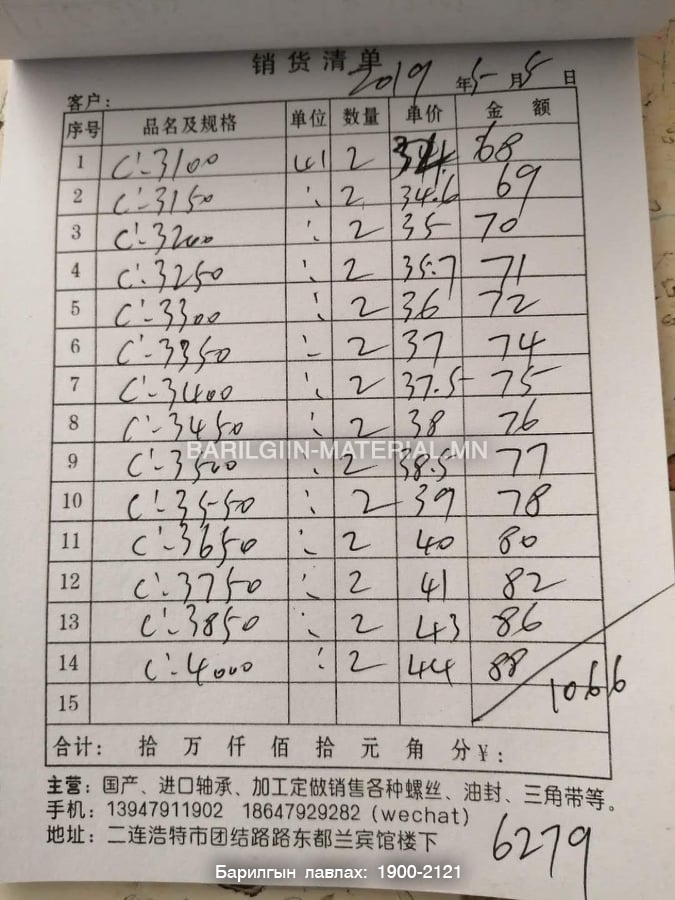 销货清单
2019 年 5 月 5 日
客户：
序号 品名及规格 单位 数量 单价 金额
1 C-3100 2 34 68
2 C-3150 〃 2 34.6 69
3 C-3200 〃 2 35 70
4 C-3250 〃 2 35.7 71
5 C-3300 〃 2 36 72
6 C-3350 〃 2 37 74
7 C-3400 〃 2 37.5 75
8 C-3450 〃 2 38 76
9 C-3500 〃 2 38.5 77
BARILGIIN-MATERIAL.MN
10 C-3550 〃 2 39 78
11 C-3650 〃 2 40 80
12 C-3750 〃 2 41 82
13 C-3850 〃 2 43 86
14 C-4000 〃 2 44 88
15 1066
合计： 拾 万 仟 佰 拾 元 角 分 ¥：
主营：国产、进口轴承、加工定做销售各种螺丝、油封、三角带等。
手机：13947911902 18647929282 (wechat)
地址：二连浩特市团结路路东都兰宾馆楼下
6279
Барилгын лавлах: 1900-2121